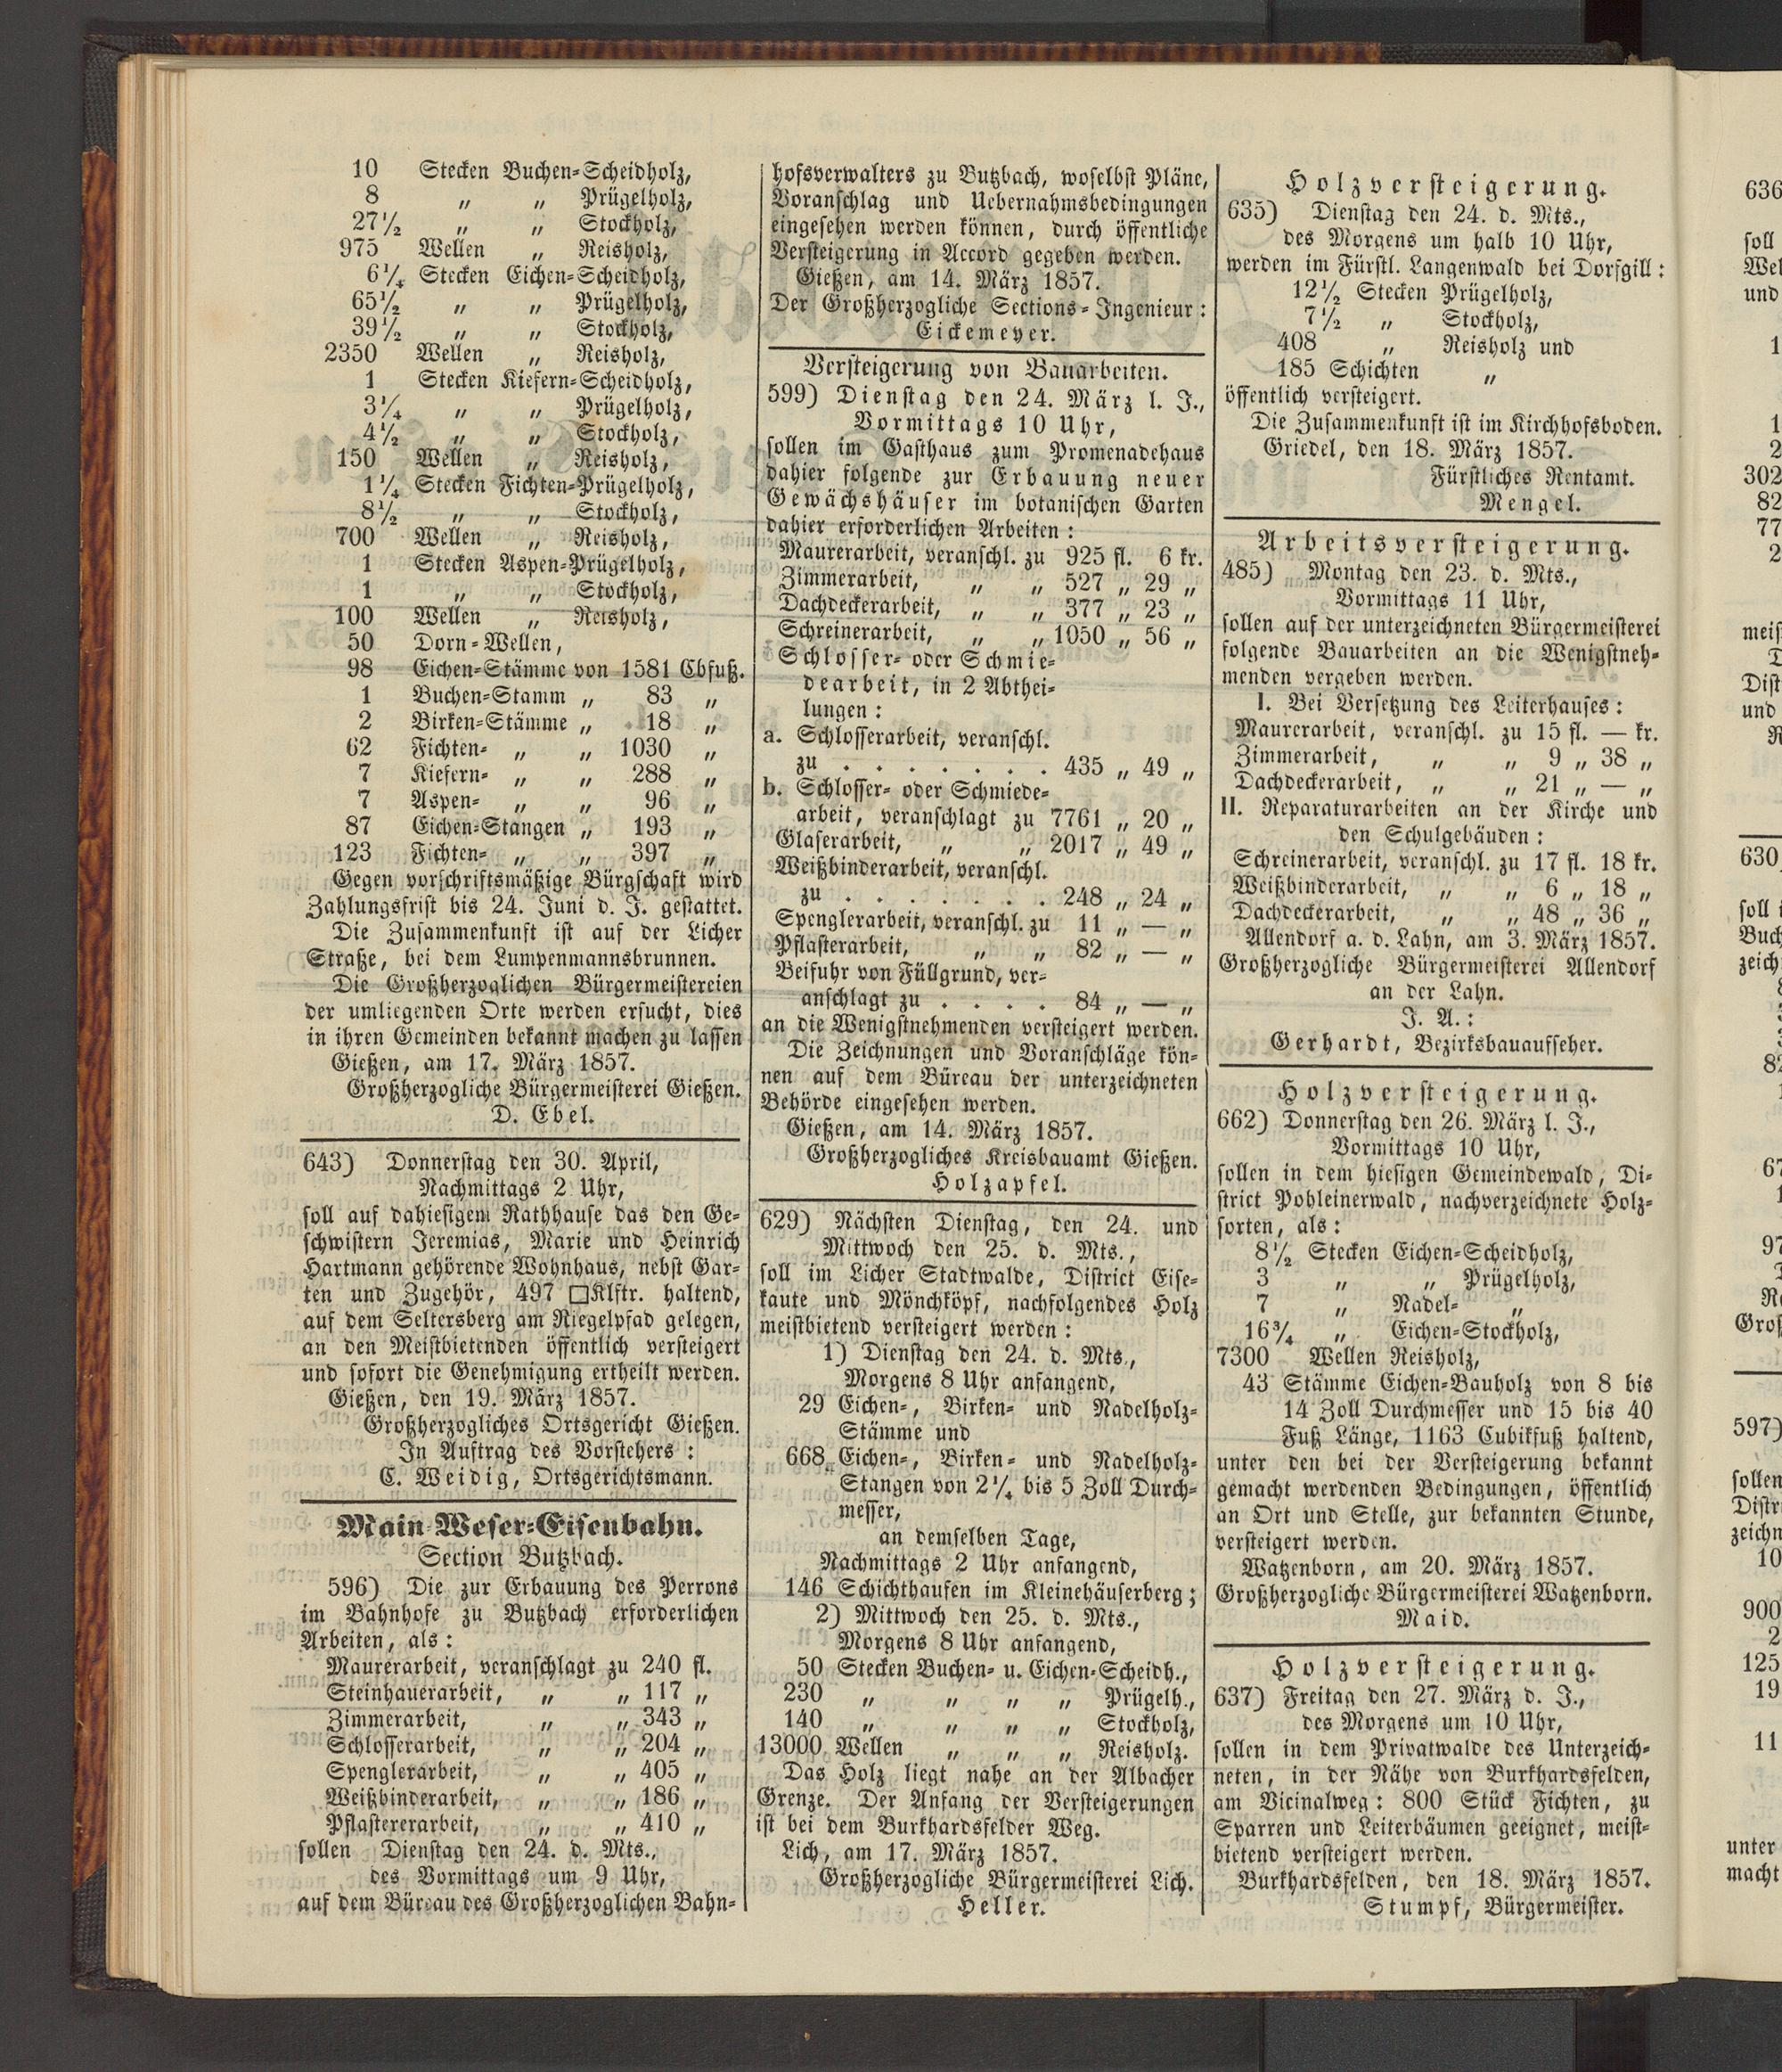 10 Stecken Buchen-Scheidholz,
8 „ „ Prügelholz,
27½ „ „ Stockholz,
975 Wellen „ Reisholz,
6¼ Stecken Eichen-Scheidholz,
65½ „ „ Prügelholz,
39½ „ „ Stockholz,
2350 Wellen „ Reisholz,
1 Stecken Kiefern-Scheidholz,
3¼ „ „ Prügelholz,
4½ „ „ Stockholz,
150 Wellen „ Reisholz,
1¼ Stecken Fichten-Prügelholz,
8½ „ „ Stockholz,
700 Wellen „ Reisholz,
1 Stecken Aspen-Prügelholz,
1 „ „ Stockholz,
100 Wellen „ Reisholz,
50 Dorn-Wellen,
98 Eichen-Stämme von 1581 Cbfuß.
1 Buchen-Stamm „ 83 „
2 Birken-Stämme „ 18 „
62 Fichten- „ „ 1030 „
7 Kiefern- „ „ 288 „
7 Aspen- „ „ 96 „
87 Eichen-Stangen „ 193 „
123 Fichten- „ „ 397 „
Gegen vorschriftsmäßige Bürgschaft wird
Zahlungsfrist bis 24. Juni d. J. gestattet.
Die Zusammenkunft ist auf der Licher
Straße, bei dem Lumpenmannsbrunnen.
Die Großherzoglichen Bürgermeistereien
der umliegenden Orte werden ersucht, dies
in ihren Gemeinden bekannt machen zu lassen
Gießen, am 17. März 1857.
Großherzogliche Bürgermeisterei Gießen.
D. Ebel.
643) Donnerstag den 30. April,
Nachmittags 2 Uhr,
soll auf dahiesigem Rathhause das den Ge-
schwistern Jeremias, Marie und Heinrich
Hartmann gehörende Wohnhaus, nebst Gar-
ten und Zugehör, 497 □Klftr. haltend,
auf dem Seltersberg am Riegelpfad gelegen,
an den Meistbietenden öffentlich versteigert
und sofort die Genehmigung ertheilt werden.
Gießen, den 19. März 1857.
Großherzogliches Ortsgericht Gießen.
In Auftrag des Vorstehers:
C. Weidig, Ortsgerichtsmann.
Main-Weser-Eisenbahn.
Section Butzbach.
596) Die zur Erbauung des Perrons
im Bahnhofe zu Butzbach erforderlichen
Arbeiten, als:
Maurerarbeit, veranschlagt zu 240 fl.
Steinhauerarbeit, „ „ 117 „
Zimmerarbeit, „ „ 343 „
Schlosserarbeit, „ „ 204 „
Spenglerarbeit, „ „ 405 „
Weißbinderarbeit, „ „ 186 „
Pflastererarbeit, „ „ 410 „
sollen Dienstag den 24. d. Mts.,
des Vormittags um 9 Uhr,
auf dem Büreau des Großherzoglichen Bahn-
hofsverwalters zu Butzbach, woselbst Pläne,
Voranschlag und Uebernahmsbedingungen
eingesehen werden können, durch öffentliche
Versteigerung in Accord gegeben werden.
Gießen, am 14. März 1857.
Der Großherzogliche Sections-Ingenieur:
Eickemeyer.
Versteigerung von Bauarbeiten.
599) Dienstag den 24. März l. J.,
Vormittags 10 Uhr,
sollen im Gasthaus zum Promenadehaus
dahier folgende zur Erbauung neuer
Gewächshäuser im botanischen Garten
dahier erforderlichen Arbeiten:
Maurerarbeit, veranschl. zu 925 fl. 6 kr.
Zimmerarbeit, „ „ 527 „ 29 „
Dachdeckerarbeit, „ „ 377 „ 23 „
Schreinerarbeit, „ „ 1050 „ 56 „
Schlosser- oder Schmie-
dearbeit, in 2 Abthei-
lungen:
a. Schlosserarbeit, veranschl.
zu . . . . . . . . 435 „ 49 „
b. Schlosser- oder Schmiede-
arbeit, veranschlagt zu 7761 „ 20 „
Glaserarbeit, „ „ 2017 „ 49 „
Weißbinderarbeit, veranschl.
zu . . . . . . . . 248 „ 24 „
Spenglerarbeit, veranschl. zu 11 „ — „
Pflasterarbeit, „ „ 82 „ — „
Beifuhr von Füllgrund, ver-
anschlagt zu . . . . 84 „ — „
an die Wenigstnehmenden versteigert werden.
Die Zeichnungen und Voranschläge kön-
nen auf dem Büreau der unterzeichneten
Behörde eingesehen werden.
Gießen, am 14. März 1857.
Großherzogliches Kreisbauamt Gießen.
Holzapfel.
629) Nächsten Dienstag, den 24. und
Mittwoch den 25. d. Mts.,
soll im Licher Stadtwalde, District Eise-
kaute und Mönchköpf, nachfolgendes Holz
meistbietend versteigert werden:
1) Dienstag den 24. d. Mts.,
Morgens 8 Uhr anfangend,
29 Eichen-, Birken- und Nadelholz-
Stämme und
668 Eichen-, Birken- und Nadelholz-
Stangen von 2¼ bis 5 Zoll Durch-
messer,
an demselben Tage,
Nachmittags 2 Uhr anfangend,
146 Schichthaufen im Kleinehäuserberg;
2) Mittwoch den 25. d. Mts.,
Morgens 8 Uhr anfangend,
50 Stecken Buchen- u. Eichen-Scheidh.,
230 „ „ „ „ Prügelh.,
140 „ „ „ „ Stockholz,
13000 Wellen „ „ „ Reisholz.
Das Holz liegt nahe an der Albacher
Grenze. Der Anfang der Versteigerungen
ist bei dem Burkhardsfelder Weg.
Lich, am 17. März 1857.
Großherzogliche Bürgermeisterei Lich.
Heller.
Holzversteigerung.
635) Dienstag den 24. d. Mts.,
des Morgens um halb 10 Uhr,
werden im Fürstl. Langenwald bei Dorfgill:
12½ Stecken Prügelholz,
7½ „ Stockholz,
408 „ Reisholz und
185 Schichten „
öffentlich versteigert.
Die Zusammenkunft ist im Kirchhofsboden.
Griedel, den 18. März 1857.
Fürstliches Rentamt.
Mengel.
Arbeitsversteigerung.
485) Montag den 23. d. Mts.,
Vormittags 11 Uhr,
sollen auf der unterzeichneten Bürgermeisterei
folgende Bauarbeiten an die Wenigstneh-
menden vergeben werden.
I. Bei Versetzung des Leiterhauses:
Maurerarbeit, veranschl. zu 15 fl. — kr.
Zimmerarbeit, „ „ 9 „ 38 „
Dachdeckerarbeit, „ „ 21 „ — „
II. Reparaturarbeiten an der Kirche und
den Schulgebäuden:
Schreinerarbeit, veranschl. zu 17 fl. 18 kr.
Weißbinderarbeit, „ „ 6 „ 18 „
Dachdeckerarbeit, „ „ 48 „ 36 „
Allendorf a. d. Lahn, am 3. März 1857.
Großherzogliche Bürgermeisterei Allendorf
an der Lahn.
J. A.:
Gerhardt, Bezirksbauaufseher.
Holzversteigerung.
662) Donnerstag den 26. März l. J.,
Vormittags 10 Uhr,
sollen in dem hiesigen Gemeindewald, Di-
strict Pohleinerwald, nachverzeichnete Holz-
sorten, als:
8½ Stecken Eichen-Scheidholz,
3 „ „ Prügelholz,
7 „ Nadel- „
16¾ „ Eichen-Stockholz,
7300 Wellen Reisholz,
43 Stämme Eichen-Bauholz von 8 bis
14 Zoll Durchmesser und 15 bis 40
Fuß Länge, 1163 Cubikfuß haltend,
unter den bei der Versteigerung bekannt
gemacht werdenden Bedingungen, öffentlich
an Ort und Stelle, zur bekannten Stunde,
versteigert werden.
Watzenborn, am 20. März 1857.
Großherzogliche Bürgermeisterei Watzenborn.
Maid.
Holzversteigerung.
637) Freitag den 27. März d. J.,
des Morgens um 10 Uhr,
sollen in dem Privatwalde des Unterzeich-
neten, in der Nähe von Burkhardsfelden,
am Vicinalweg: 800 Stück Fichten, zu
Sparren und Leiterbäumen geeignet, meist-
bietend versteigert werden.
Burkhardsfelden, den 18. März 1857.
Stumpf, Bürgermeister.
636
soll
Wel
und
1
1
2
302
82
77
2
meis
Dist
und
630)
soll i
Buch
zeich
82
67
97
Gro
597)
sollen
Distr
zeichn
10
900
2
125
19
11
unter
macht